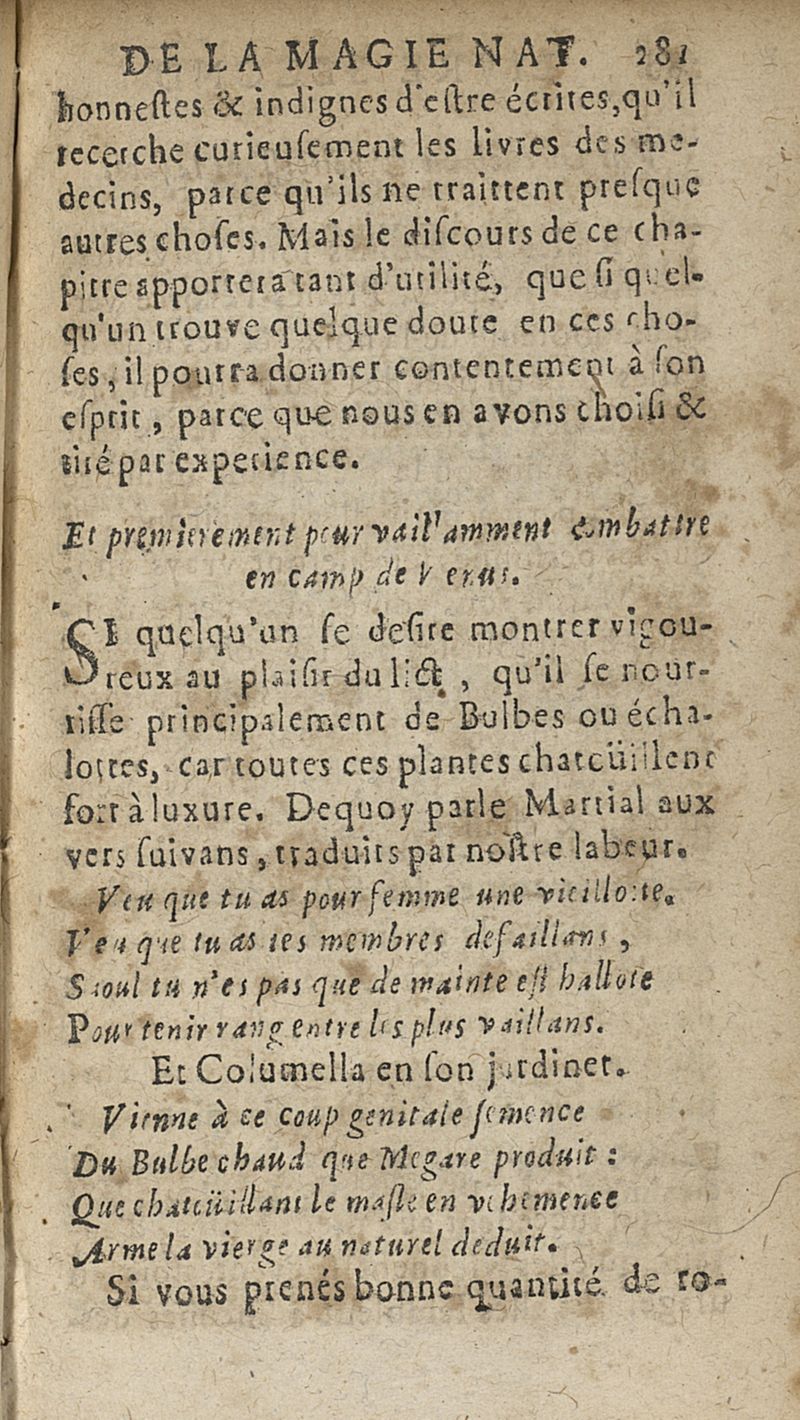 DE LA MAGIE NAT. 281
honneſtes & indignes d'eſtre écrites, qu'il
recerche curieuſement les livres des me-
decins, parce qu'ils ne traittent preſque
autres choſes. Mais le diſcours de ce cha-
pitre apportera tant d'utilité, que ſi quel-
qu'un trouve quelque doute en ces cho-
ſes, il pourra donner contentement à ſon
eſprit, parce que nous en avons choiſi &
tiré par experience.
Et premierement pour vaillamment combattre
en camp de Venus.
SI quelqu'un ſe deſire montrer vigou-
reux au plaiſir du lict, qu'il ſe nour-
riſſe principalement de Bulbes ou écha-
lottes, car toutes ces plantes chatcüillent
fort à luxure. Dequoy parle Martial aux
vers ſuivans, traduits par noſtre labeur.
Veu que tu as pour femme une vieillotte,
Veu que tu as tes membres defaillans,
Saoul tu n'es pas que de mainte eſchallote
Pour tenir rang entre les plus vaillans.
Et Columella en ſon jardinet.
Vienne à ce coup genitale ſemence
Du Bulbe chaud que Megare produit :
Que chatcüillant le maſle en vehemence
Arme la vierge au naturel deduit.
Si vous prenés bonne quantité de ro-